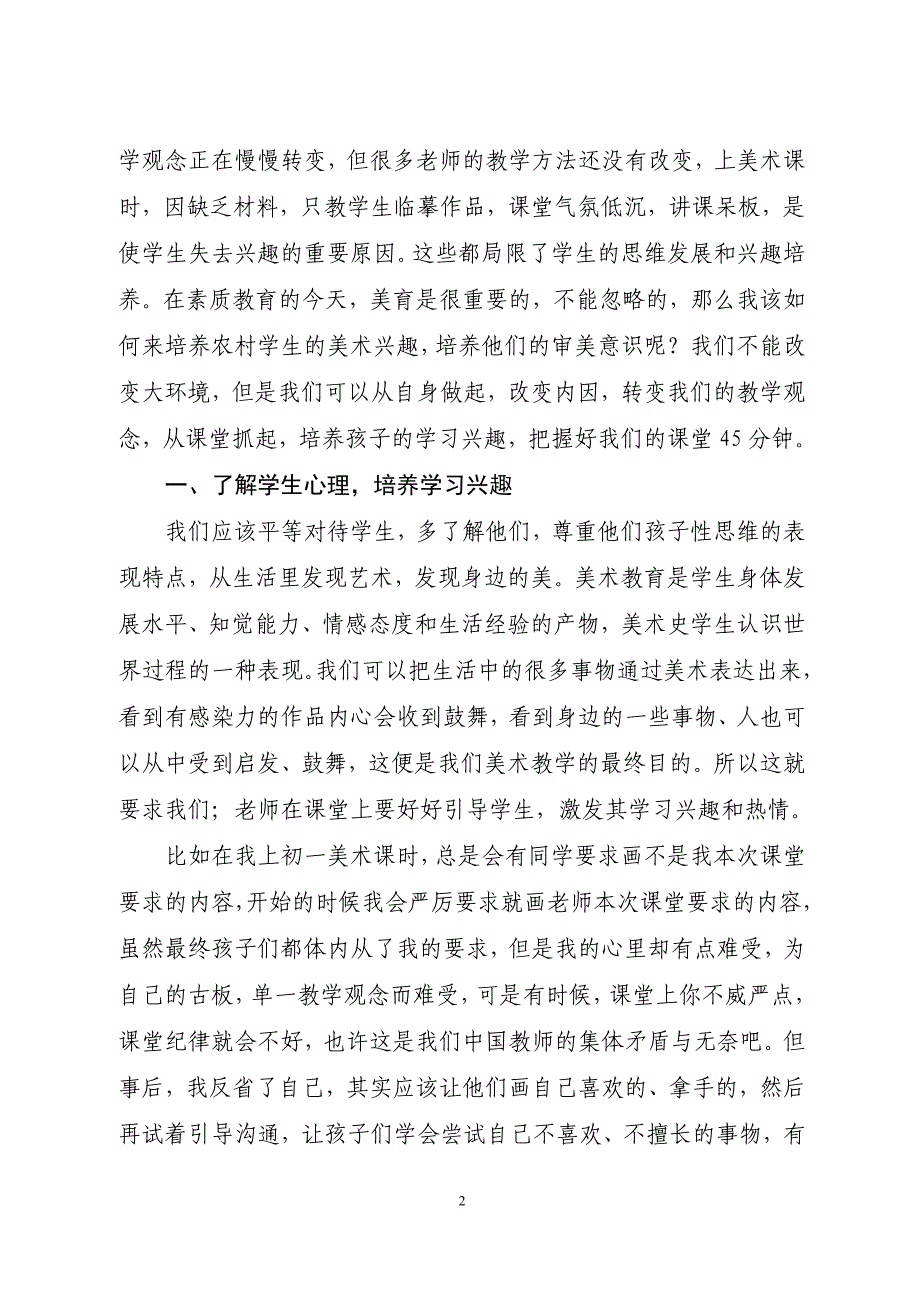 学观念正在慢慢转变，但很多老师的教学方法还没有改变，上美术课
时，因缺乏材料，只教学生临摹作品，课堂气氛低沉，讲课呆板，是
使学生失去兴趣的重要原因。这些都局限了学生的思维发展和兴趣培
养。在素质教育的今天，美育是很重要的，不能忽略的，那么我该如
何来培养农村学生的美术兴趣，培养他们的审美意识呢？我们不能改
变大环境，但是我们可以从自身做起，改变内因，转变我们的教学观
念，从课堂抓起，培养孩子的学习兴趣，把握好我们的课堂 45 分钟。
一、了解学生心理，培养学习兴趣
我们应该平等对待学生，多了解他们，尊重他们孩子性思维的表
现特点，从生活里发现艺术，发现身边的美。美术教育是学生身体发
展水平、知觉能力、情感态度和生活经验的产物，美术史学生认识世
界过程的一种表现。我们可以把生活中的很多事物通过美术表达出来，
看到有感染力的作品内心会收到鼓舞，看到身边的一些事物、人也可
以从中受到启发、鼓舞，这便是我们美术教学的最终目的。所以这就
要求我们；老师在课堂上要好好引导学生，激发其学习兴趣和热情。
比如在我上初一美术课时，总是会有同学要求画不是我本次课堂
要求的内容，开始的时候我会严厉要求就画老师本次课堂要求的内容，
虽然最终孩子们都体内从了我的要求，但是我的心里却有点难受，为
自己的古板，单一教学观念而难受，可是有时候，课堂上你不威严点，
课堂纪律就会不好，也许这是我们中国教师的集体矛盾与无奈吧。但
事后，我反省了自己，其实应该让他们画自己喜欢的、拿手的，然后
再试着引导沟通，让孩子们学会尝试自己不喜欢、不擅长的事物，有
2